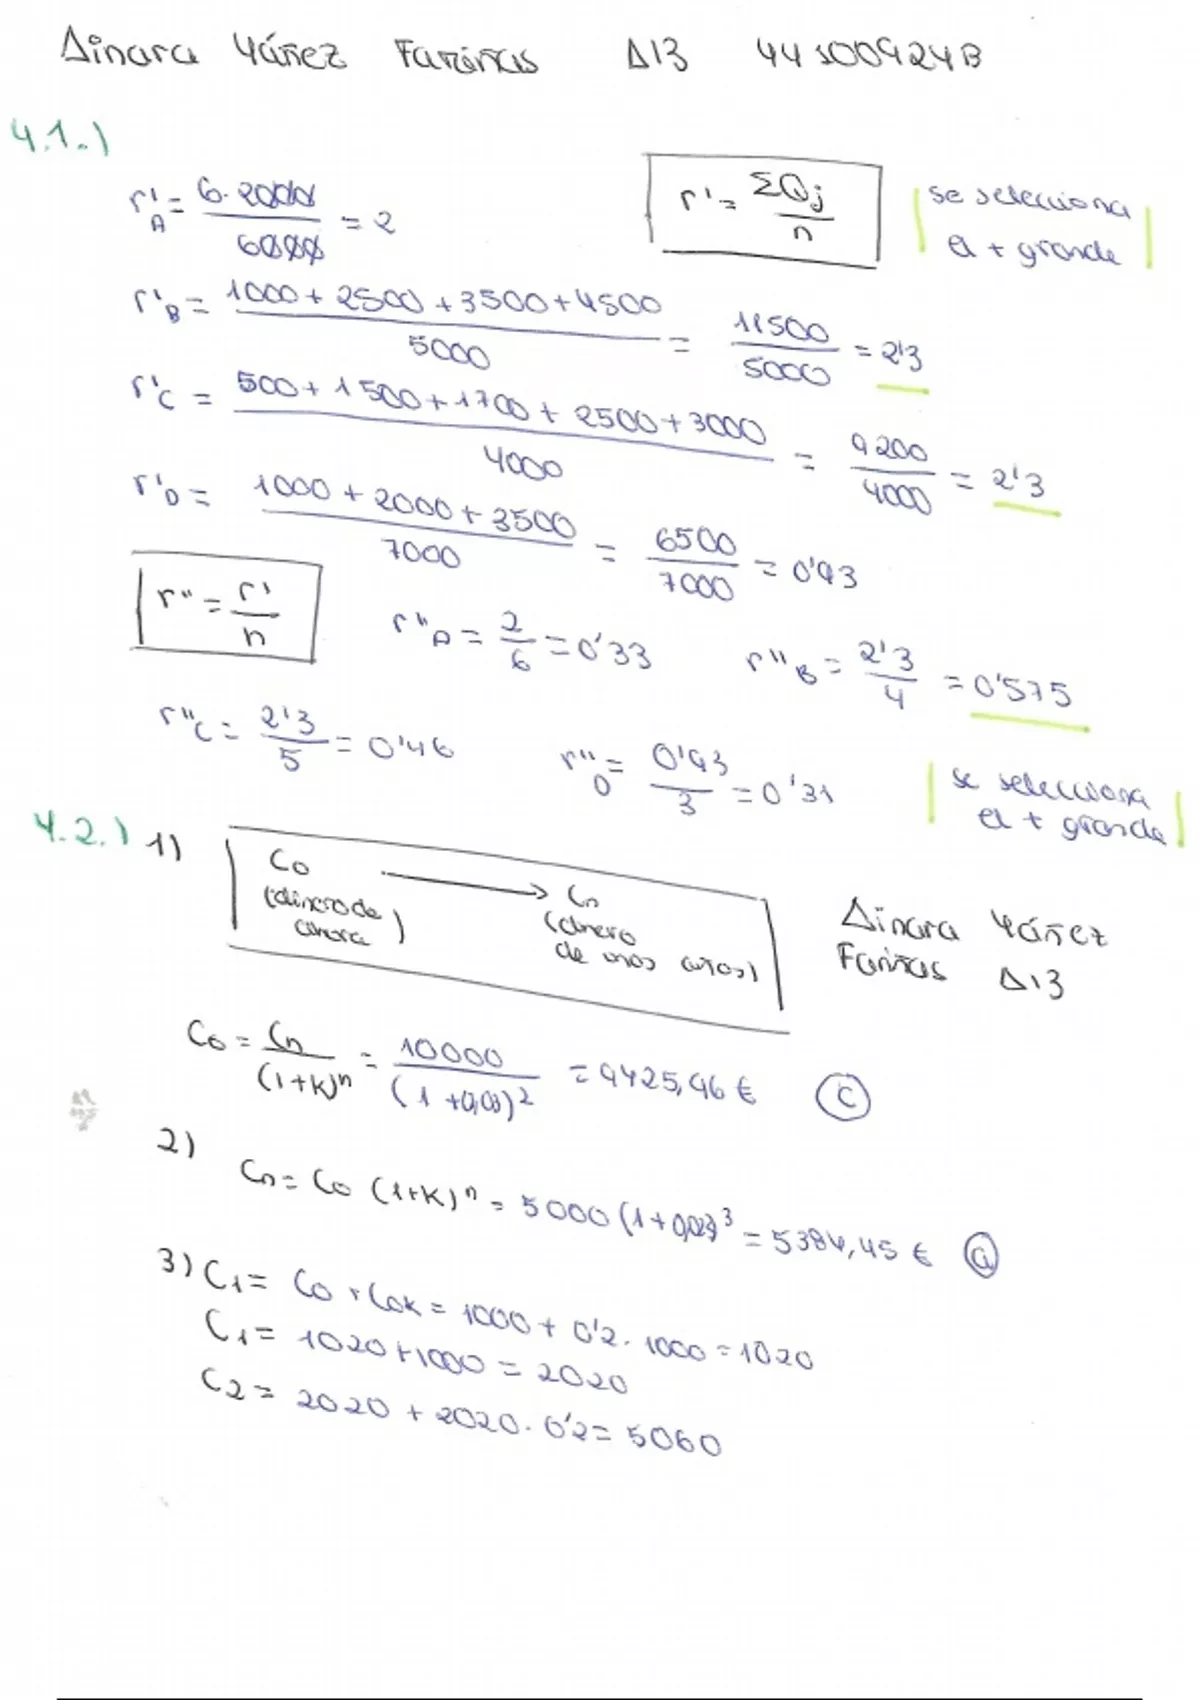 Dinara Yáñez Fariñas D13 44300924B
4.1.)
r'A = 6·2000 / 6000 = 2
r' = ΣQj / n
se selecciona
el + grande
r'B = 1000 + 2500 + 3500 + 4500 / 5000 = 11500 / 5000 = 2'3
r'C = 500 + 1500 + 1700 + 2500 + 3000 / 4000 = 9200 / 4000 = 2'3
r'D = 1000 + 2000 + 3500 / 7000 = 6500 / 7000 = 0'93
r'' = r' / n
r''A = 2 / 6 = 0'33
r''B = 2'3 / 4 = 0'575
r''C = 2'3 / 5 = 0'46
r''D = 0'93 / 3 = 0'31
se selecciona
el + grande
4.2.) 1)
Co → Cn
(dinero de
ahora)
(dinero
de unos años)
Dinara Yáñez
Fariñas D13
Co = Cn / (1+K)^n = 10000 / (1+0,03)^2 = 9425,96 € (C)
2)
Cn = Co (1+K)^n = 5000 (1+0,025)^3 = 5384,45 € (a)
3) C1 = Co + CoK = 1000 + 0'2 · 1000 = 1020
C1 = 1020 + 1000 = 2020
C2 = 2020 + 2020 · 0'2 = 5060